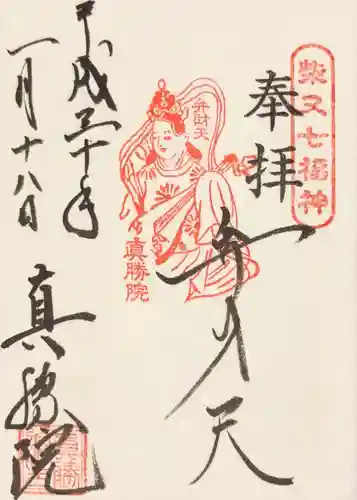 柴又七福神
奉拝
弁才天
弁財天
真勝院
平成三十年
一月十八日
真勝院